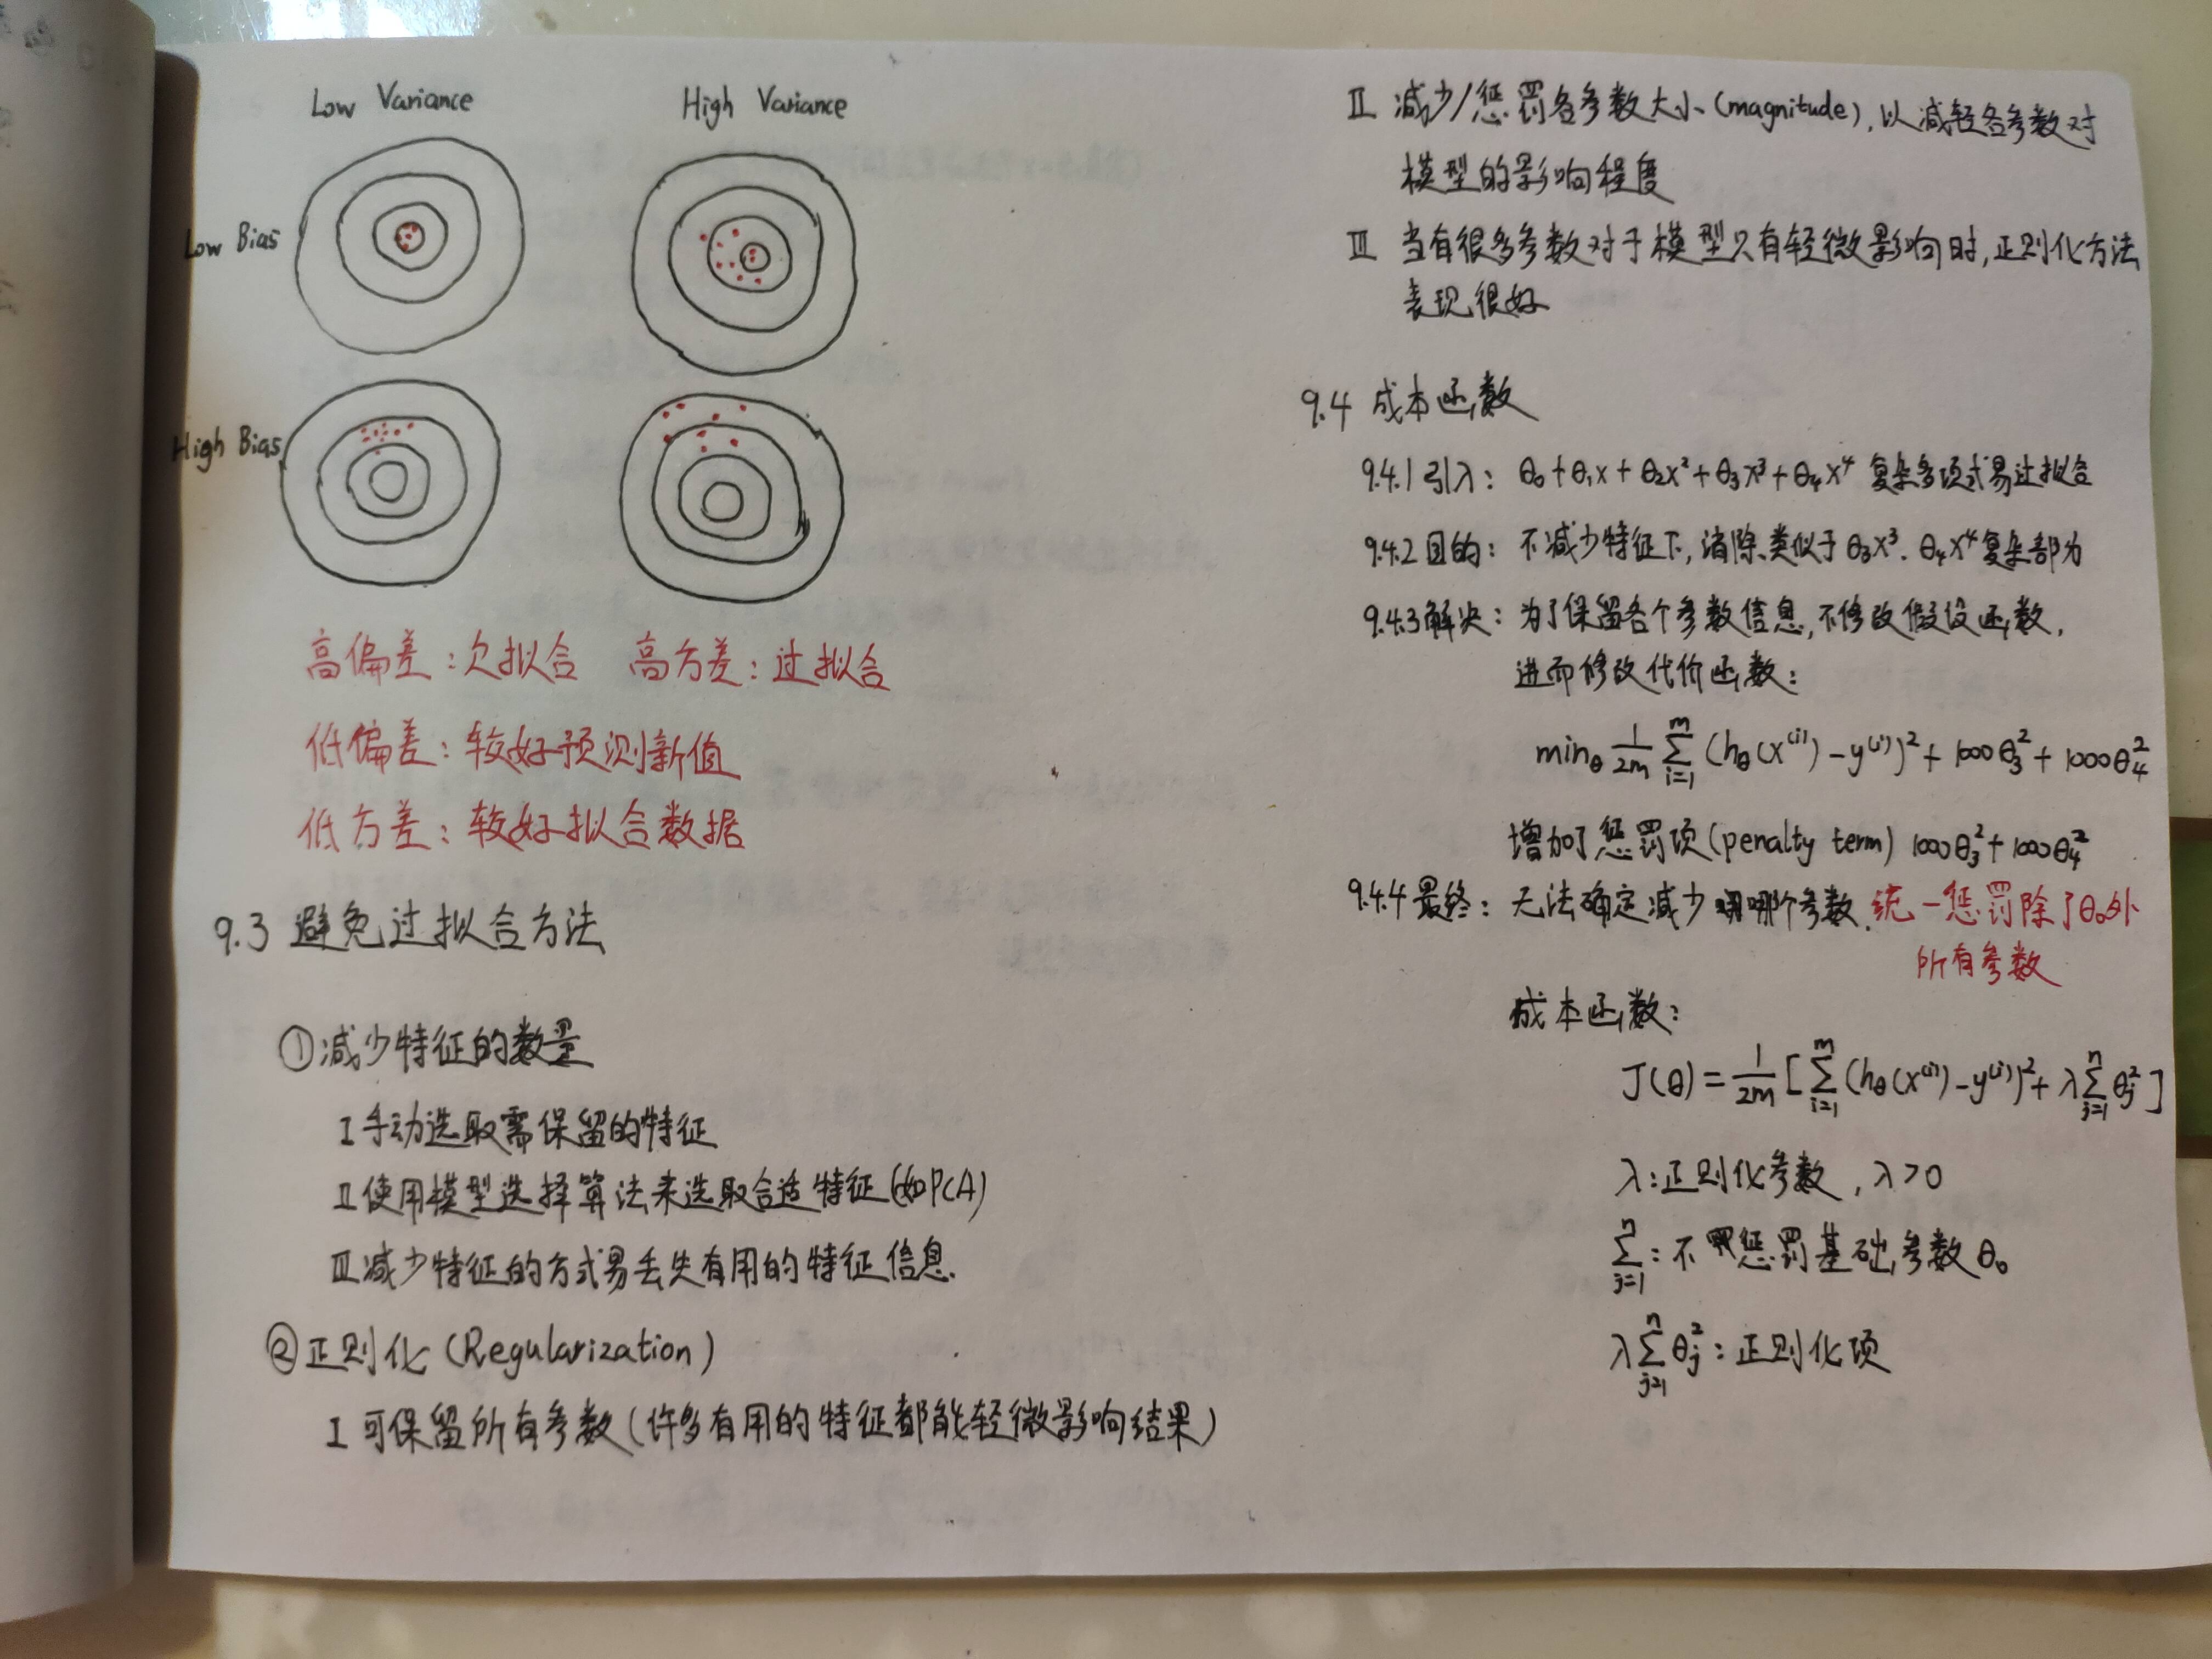 Low Variance
High Variance
Low Bias
High Bias
高偏差：欠拟合 高方差：过拟合
低偏差：较好预测新值
低方差：较好拟合数据
9.3 避免过拟合方法
①减少特征的数量
I 手动选取需保留的特征
II 使用模型选择算法来选取合适特征(如PCA)
III 减少特征的方式易丢失有用的特征信息.
②正则化(Regularization)
I 可保留所有参数(许多有用的特征都能轻微影响结果)
II 减少/惩罚各参数大小(magnitude),以减轻各参数对
模型的影响程度
III 当有很多参数对于模型只有轻微影响时,正则化方法
表现很好
9.4 成本函数
9.4.1 引入: θ₀+θ₁x+θ₂x²+θ₃x³+θ₄x⁴ 复杂多项式易过拟合
9.4.2 目的: 不减少特征下,消除类似于θ₃x³、θ₄x⁴复杂部为
9.4.3 解决: 为了保留各个参数信息,不修改假设函数,
进而修改代价函数:
min_θ 1/2m ∑_{i=1}^{m} (h_θ(x^{(i)})-y^{(i)})²+1000θ₃²+1000θ₄²
增加了惩罚项(penalty term) 1000θ₃²+1000θ₄²
9.4.4 最终: 无法确定减少哪个参数.统一惩罚除了θ₀外
所有参数
成本函数:
J(θ)=1/2m[∑_{i=1}^{m}(h_θ(x^{(i)})-y^{(i)})²+λ∑_{j=1}^{n}θ_j²]
λ:正则化参数,λ>0
∑_{j=1}^{n}:不惩罚基础参数θ₀
λ∑_{j=1}^{n}θ_j²:正则化项